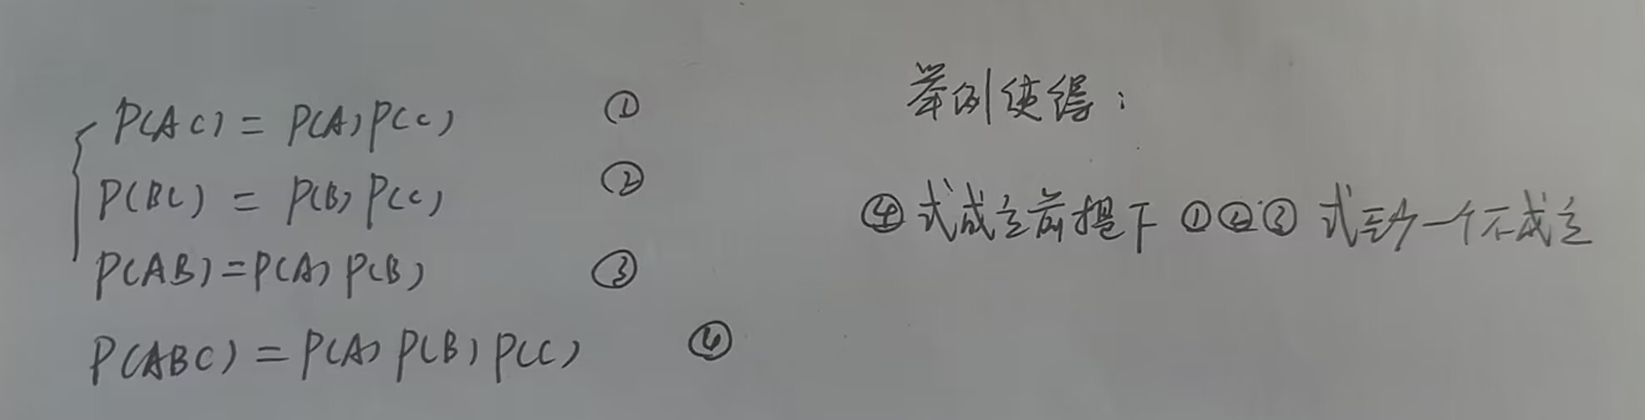 P(AC) = P(A)P(C) ①
P(BC) = P(B)P(C) ②
P(AB)=P(A)P(B) ③
P(ABC) = P(A)P(B)P(C) ④
举例使得:
④式成立前提下 ①②③ 式至少一个不成立